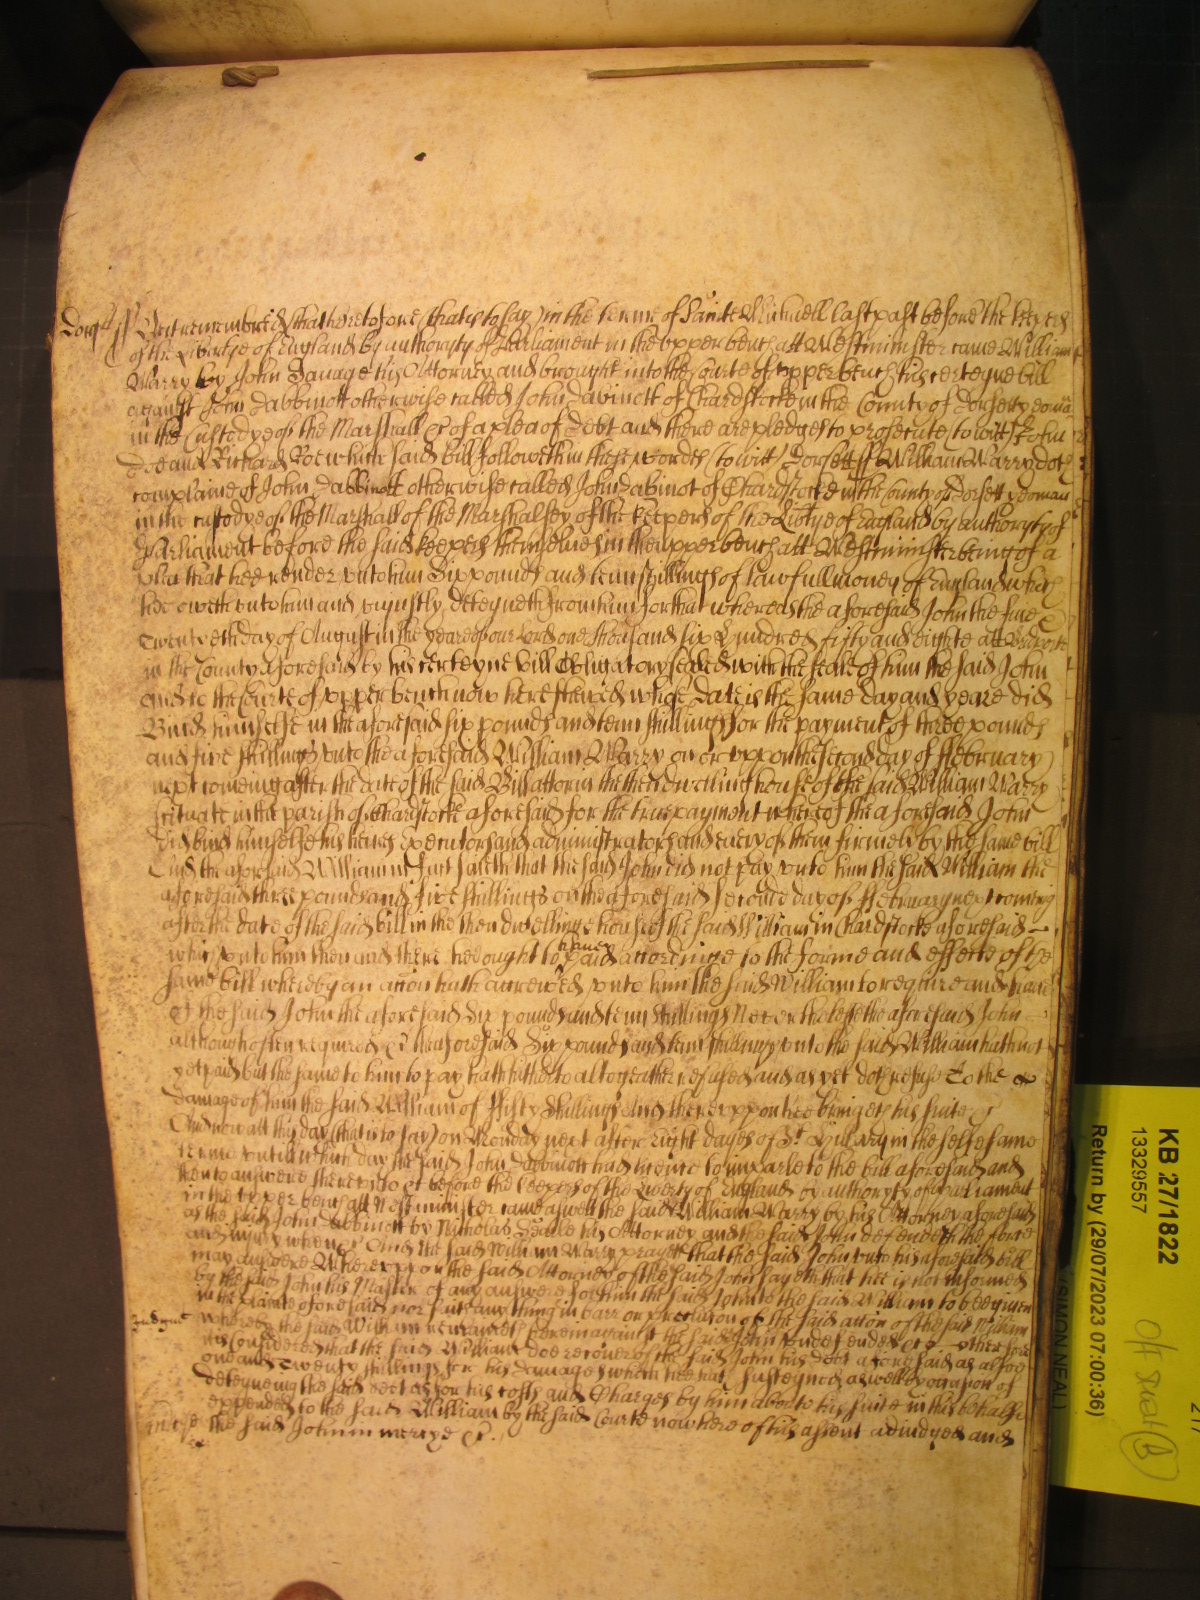 Dorsett ss Bee it remembred that heretofore (that is to say) in the terme of Sainte Michaell last past before the keepers
of the Libertye of England by authority of Parliament in the upper bench att Westminster came William
Warry by John Savage his Attorney and brought into the Courte of upper bench his certeyne bill
against John Dabbinott otherwise called John Dabinott of Chardstocke in the County of Dorsett yeoma
in the Custodye of the Marshall &c of a plea of Debt and there are pledges to prosecute (to witt) John
Doe and Richard Roe which said bill followeth in these wordes (to witt) Dorsett ss William Warry doth
complaine of John Dabbinott otherwise called John Dabinot of Chardstocke in the County of Dorsett yeoman
in the custodye of the Marshall of the Marshalsey of the keepers of the Libtye of England by authoryty of
Parliament before the said keepers themselves in the upper bench att Westminster being of a
plea that hee render unto him Six pounds and tenn shillings of lawfull money of England which
hee oweth unto him and uniustly deteyneth from him for that whereas the aforesaid John the five &
twentyeth day of August in the yeare of our Lord one thousand six hundred fifty and eighte att
in the County aforesaid by his certeyne bill Obligatory sealed with the seale of him the said John
and to the Courte of upper bench now here shewed whose date is the same day and yeare did
Binde himselfe in the aforesaid six pounds and tenn shillings for the payment of three pounds
and five shillings unto the aforesaid William Warry or upon the second day of February
next comeing after the date of the said Bill att or in the then dwelling house of the said William Warry
scituate in the parish of Chardstocke aforesaid for the true payment whereof the aforesaid John
did bind himselfe his heires executors and administrators and every of them firmely by the same bill
And the aforesaid William in fact saieth that the said John did not pay unto him the said William the
aforesaid three pounds and five shillings on the aforesaid second day of February next comeing
after the date of the said bill in the then dwellinge house of the said William in Chardstocke aforesaid
which unto him then and there hee ought to have paid accordinge to the forme and effecte of the
same bill whereby an accon hath accrewed unto him the said William to require and have
of the said John the aforesaid Six pounds and tenn shillings Neverthelesse the aforesaid John
although often required &c the aforesaid Six pounds and tenn shillings unto the said William hath not
yet paid but the same to him to pay hath hitherto altogeather refused and as yet doth refuse To the
damage of him the said William of Fifty Shillings And thereuppon hee bringeth his suite &
And now att this day (that is to say) on Monday next after eight dayes of St Hillary in the selfe same
terme untill which day the said John Dabbinott had licence to imparle to the bill aforesaid and
then to answere thereunto &c before the keepers of the Liberty of England by authoryty of Parliament
in the upper bench att Westminster came aswell the said William Warry by his Attorney aforesaid
as the said John Dabbinott by Nicholas Beale his Attorney and the said John defendeth the force
and iniury when &c And the said William Warry prayeth that the said John unto his aforesaid bill
may answere Whereuppon the said Attorney of the said John sayeth that hee is not informed
by the said John his Master of any answere for him the said John to the said William to bee given
in the plainte aforesaid nor saith any thing in barr or preclusion of the said accon of the said William
Judgmt whereby the said William remaineth thereon against the said John undefended &c Therefore
itt is considered that the said William doe recover of the said John his debt aforesaid as alsoe
one and twenty shillings for his damages which hee hath susteyned aswell by occasion of
deteyneing the said debt as for his costs and Charges by him about his suite in this behalfe
expended to the said William by the said Courte now here of his assent adiudged and
mcye the said John in mercye &c.
KB 27/1822
13329557
Return by (29/07/2023 07:00:36)
(SIMON NEAL)